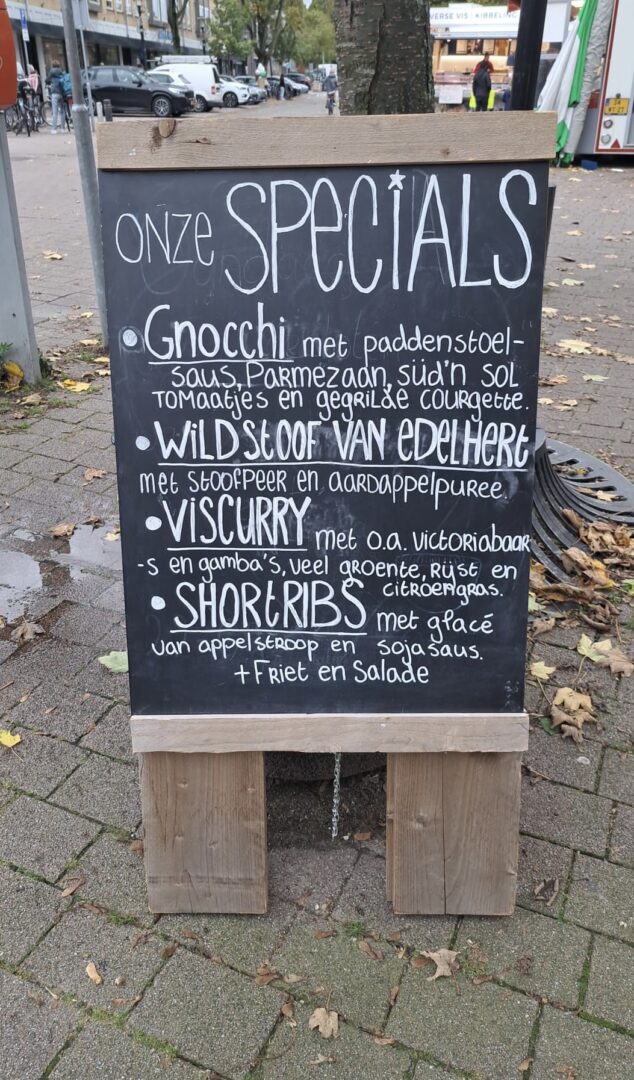 VERSE VIS | KIBBELING
ONZE SPECIALS
• Gnocchi met paddenstoel-
saus, Parmezaan, süd'n sol
tomaatjes en gegrilde courgette.
• Wildstoof van edelhert
met stoofpeer en aardappelpuree.
• Viscurry met o.a. victoriabaar
-s en gamba's, veel groente, rijst en
citroengras.
• Shortribs met glacé
van appelstroop en sojasaus.
+ Friet en Salade